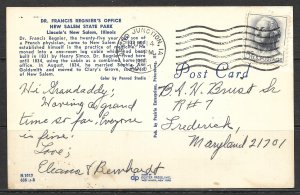 DR. FRANCIS REGNIER'S OFFICE
NEW SALEM STATE PARK
Lincoln's New Salem, Illinois
Dr. Francis Regnier, the twenty-five year
a French physician, came to New Salem
established himself in the practice of medicine. He
moved into an abandoned one-room cabin,
built in 1831 by Henry Sinco. Dr. Regnier
here until 1834, using the cabin as a combined home
and office. In August, 1834, he married Sophie
Goldsmith and moved to Clary's Grove,
of New Salem.
Color by Penrod Studio
JUNCTION, IA.
Post Card
Hi Grandaddy;
Having a grand
time so far. Everyone
is fine.
Love;
Eleanor & Bernhardt
B. H. N. Brust Sr
R#7
Frederick,
Maryland 21701
dp